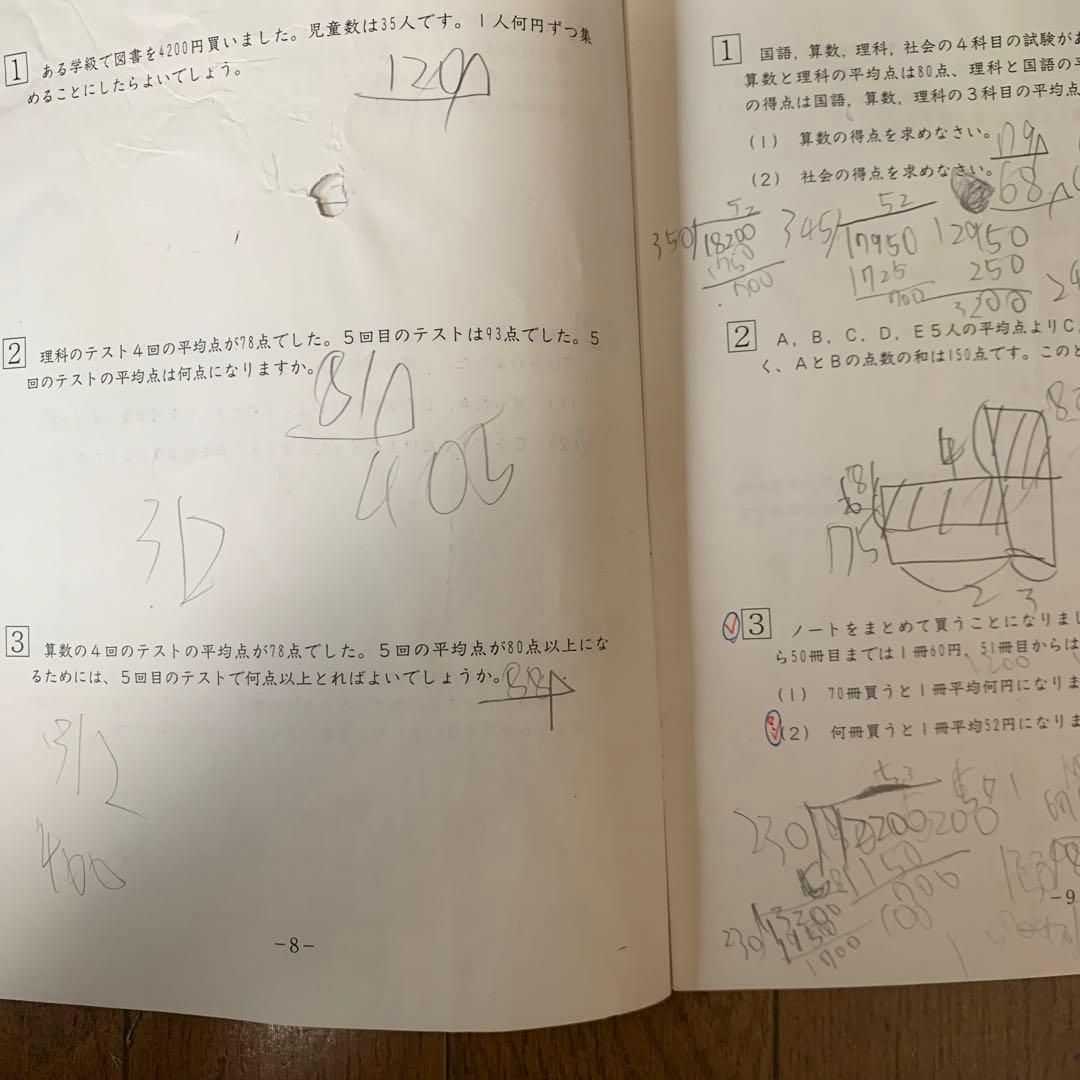 1 ある学級で図書を4200円買いました。児童数は35人です。1人何円ずつ集
めることにしたらよいでしょう。
120
2 理科のテスト4回の平均点が78点でした。5回目のテストは93点でした。5
回のテストの平均点は何点になりますか。
81
405
312
3 算数の4回のテストの平均点が78点でした。5回の平均点が80点以上にな
るためには、5回目のテストで何点以上とればよいでしょうか。
88
312
400
-8-
1 国語，算数，理科，社会の4科目の試験が
算数と理科の平均点は80点、理科と国語の
の得点は国語，算数，理科の3科目の平均点
(1) 算数の得点を求めなさい。
(2) 社会の得点を求めなさい。
68
52
350 18200
1750
700
52
345 17950
1725
700
12950
250
3200
2 A，B，C，D，E5人の平均点よりC，
く、AとBの点数の和は150点です。この
75
2 3
3 ノートをまとめて買うことになりまし
ら50冊目までは1冊60円、51冊目からは
(1) 70冊買うと1冊平均何円になりま
(2) 何冊買うと1冊平均52円になりま
230
1150
230
1700
-9